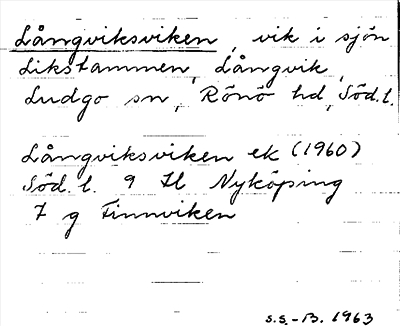 Långviksviken, vik i sjön
Likstammen, Långvik,
Ludgo sn, Rönö hd, Söd.l.
Långviksviken ek (1960)
Söd. l. 9 H Nyköping
7 g Finnviken
S.S.-B. 1963